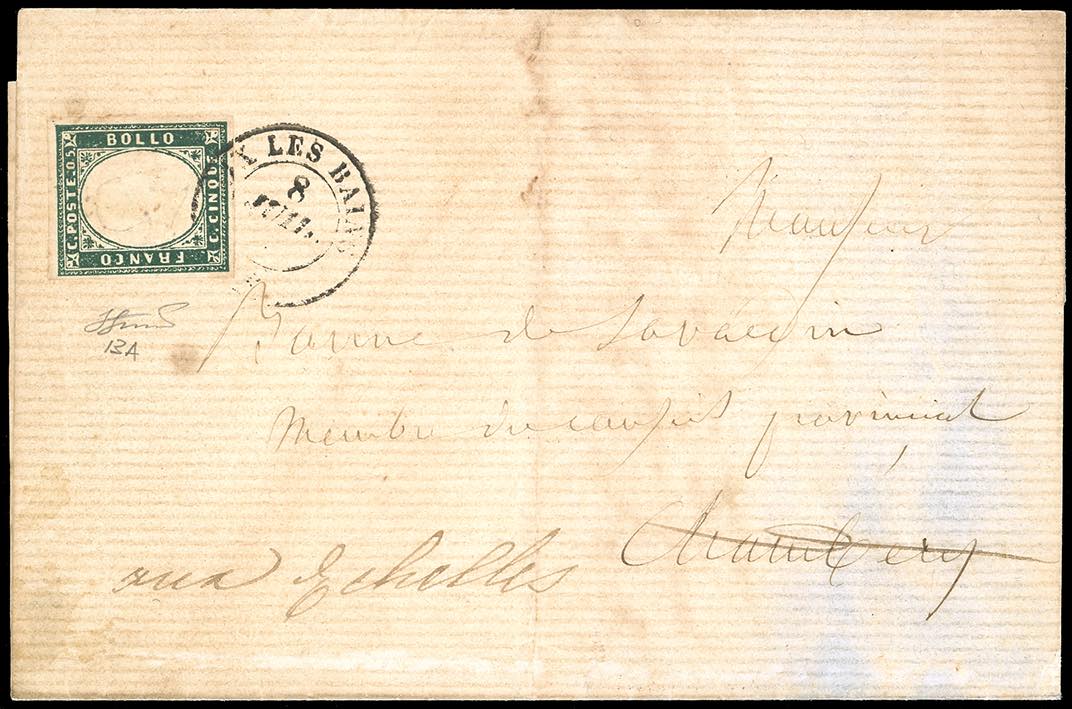 BOLLO
C. POSTE. 05.
C. CINQUE
FRANCO
AIX LES BAINS
8
JUIL.
13A
Monsieur
de
Membre du conseil provincial
Chambéry
aux Echelles